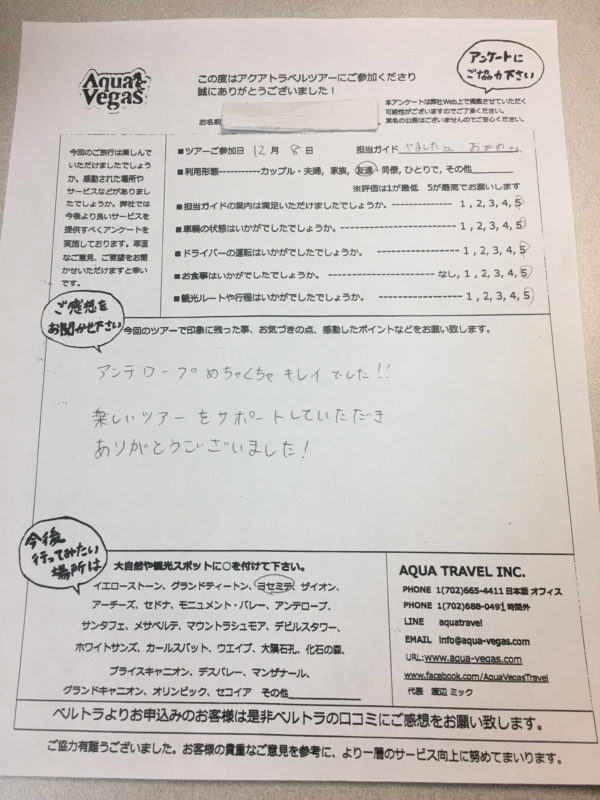 Aqua Vegas
この度はアクアトラベルツアーにご参加くださり
誠にありがとうございました！
アンケートに
ご協力下さい
本アンケートは弊社Web上で掲載させていただく
可能性がございますのでご了承ください。
実名の公表はございませんのでご安心ください。
お名前
今回のご旅行は楽しんで
いただけましたでしょう
か。感動された場所や
サービスなどがありまし
たでしょうか。弊社では
今後より良いサービスを
提供すべくアンケートを
実施しております。率直
なご意見、ご要望をお聞
かせいただけますと幸い
です。
■ツアーご参加日 12 月 8 日 担当ガイド やましたさん おがわさん
■利用形態-----------カップル・夫婦, 家族, 友達・同僚, ひとりで, その他
※評価は1が最低 5が最高でお願いします
■担当ガイドの案内は満足いただけましたでしょうか。 ---------- 1 , 2, 3, 4, 5
■車輌の状態はいかがでしたでしょうか。 ---------- 1 , 2, 3, 4, 5
■ドライバーの運転はいかがでしたでしょうか。 ---------- 1 , 2, 3, 4, 5
■お食事はいかがでしたでしょうか。 ---------- なし, 1, 2, 3, 4, 5
■観光ルートや行程はいかがでしたでしょうか。 ---------- 1 , 2, 3, 4, 5
ご感想を
お聞かせ下さい
今回のツアーで印象に残った事、お気づきの点、感動したポイントなどをお願い致します。
アンテロープめちゃくちゃキレイでした!!
楽しいツアーをサポートしていただき
ありがとうございました!
今後
行ってみたい
場所は
大自然や観光スポットに○を付けて下さい。
イエローストーン、グランドティートン、ヨセミテ、ザイオン、
アーチーズ、セドナ、モニュメント・バレー、アンテロープ、
サンタフェ、メサベルテ、マウントラシュモア、デビルスタワー、
ホワイトサンズ、カールスバット、ウエイブ、大隕石孔、化石の森、
ブライスキャニオン、デスバレー、マンザナール、
グランドキャニオン、オリンピック、セコイア その他
AQUA TRAVEL INC.
PHONE 1(702)665-4411 日本語 オフィス
PHONE 1(702)688-0491 時間外
LINE aquatravel
EMAIL info@aqua-vegas.com
URL:www.aqua-vegas.com
www.facebook.com/AquaVegasTravel
代表 渡辺 ミック
ベルトラよりお申込みのお客様は是非ベルトラの口コミにご感想をお願い致します。
ご協力有難うございました。お客様の貴重なご意見を参考に、より一層のサービス向上に努めてまいります。